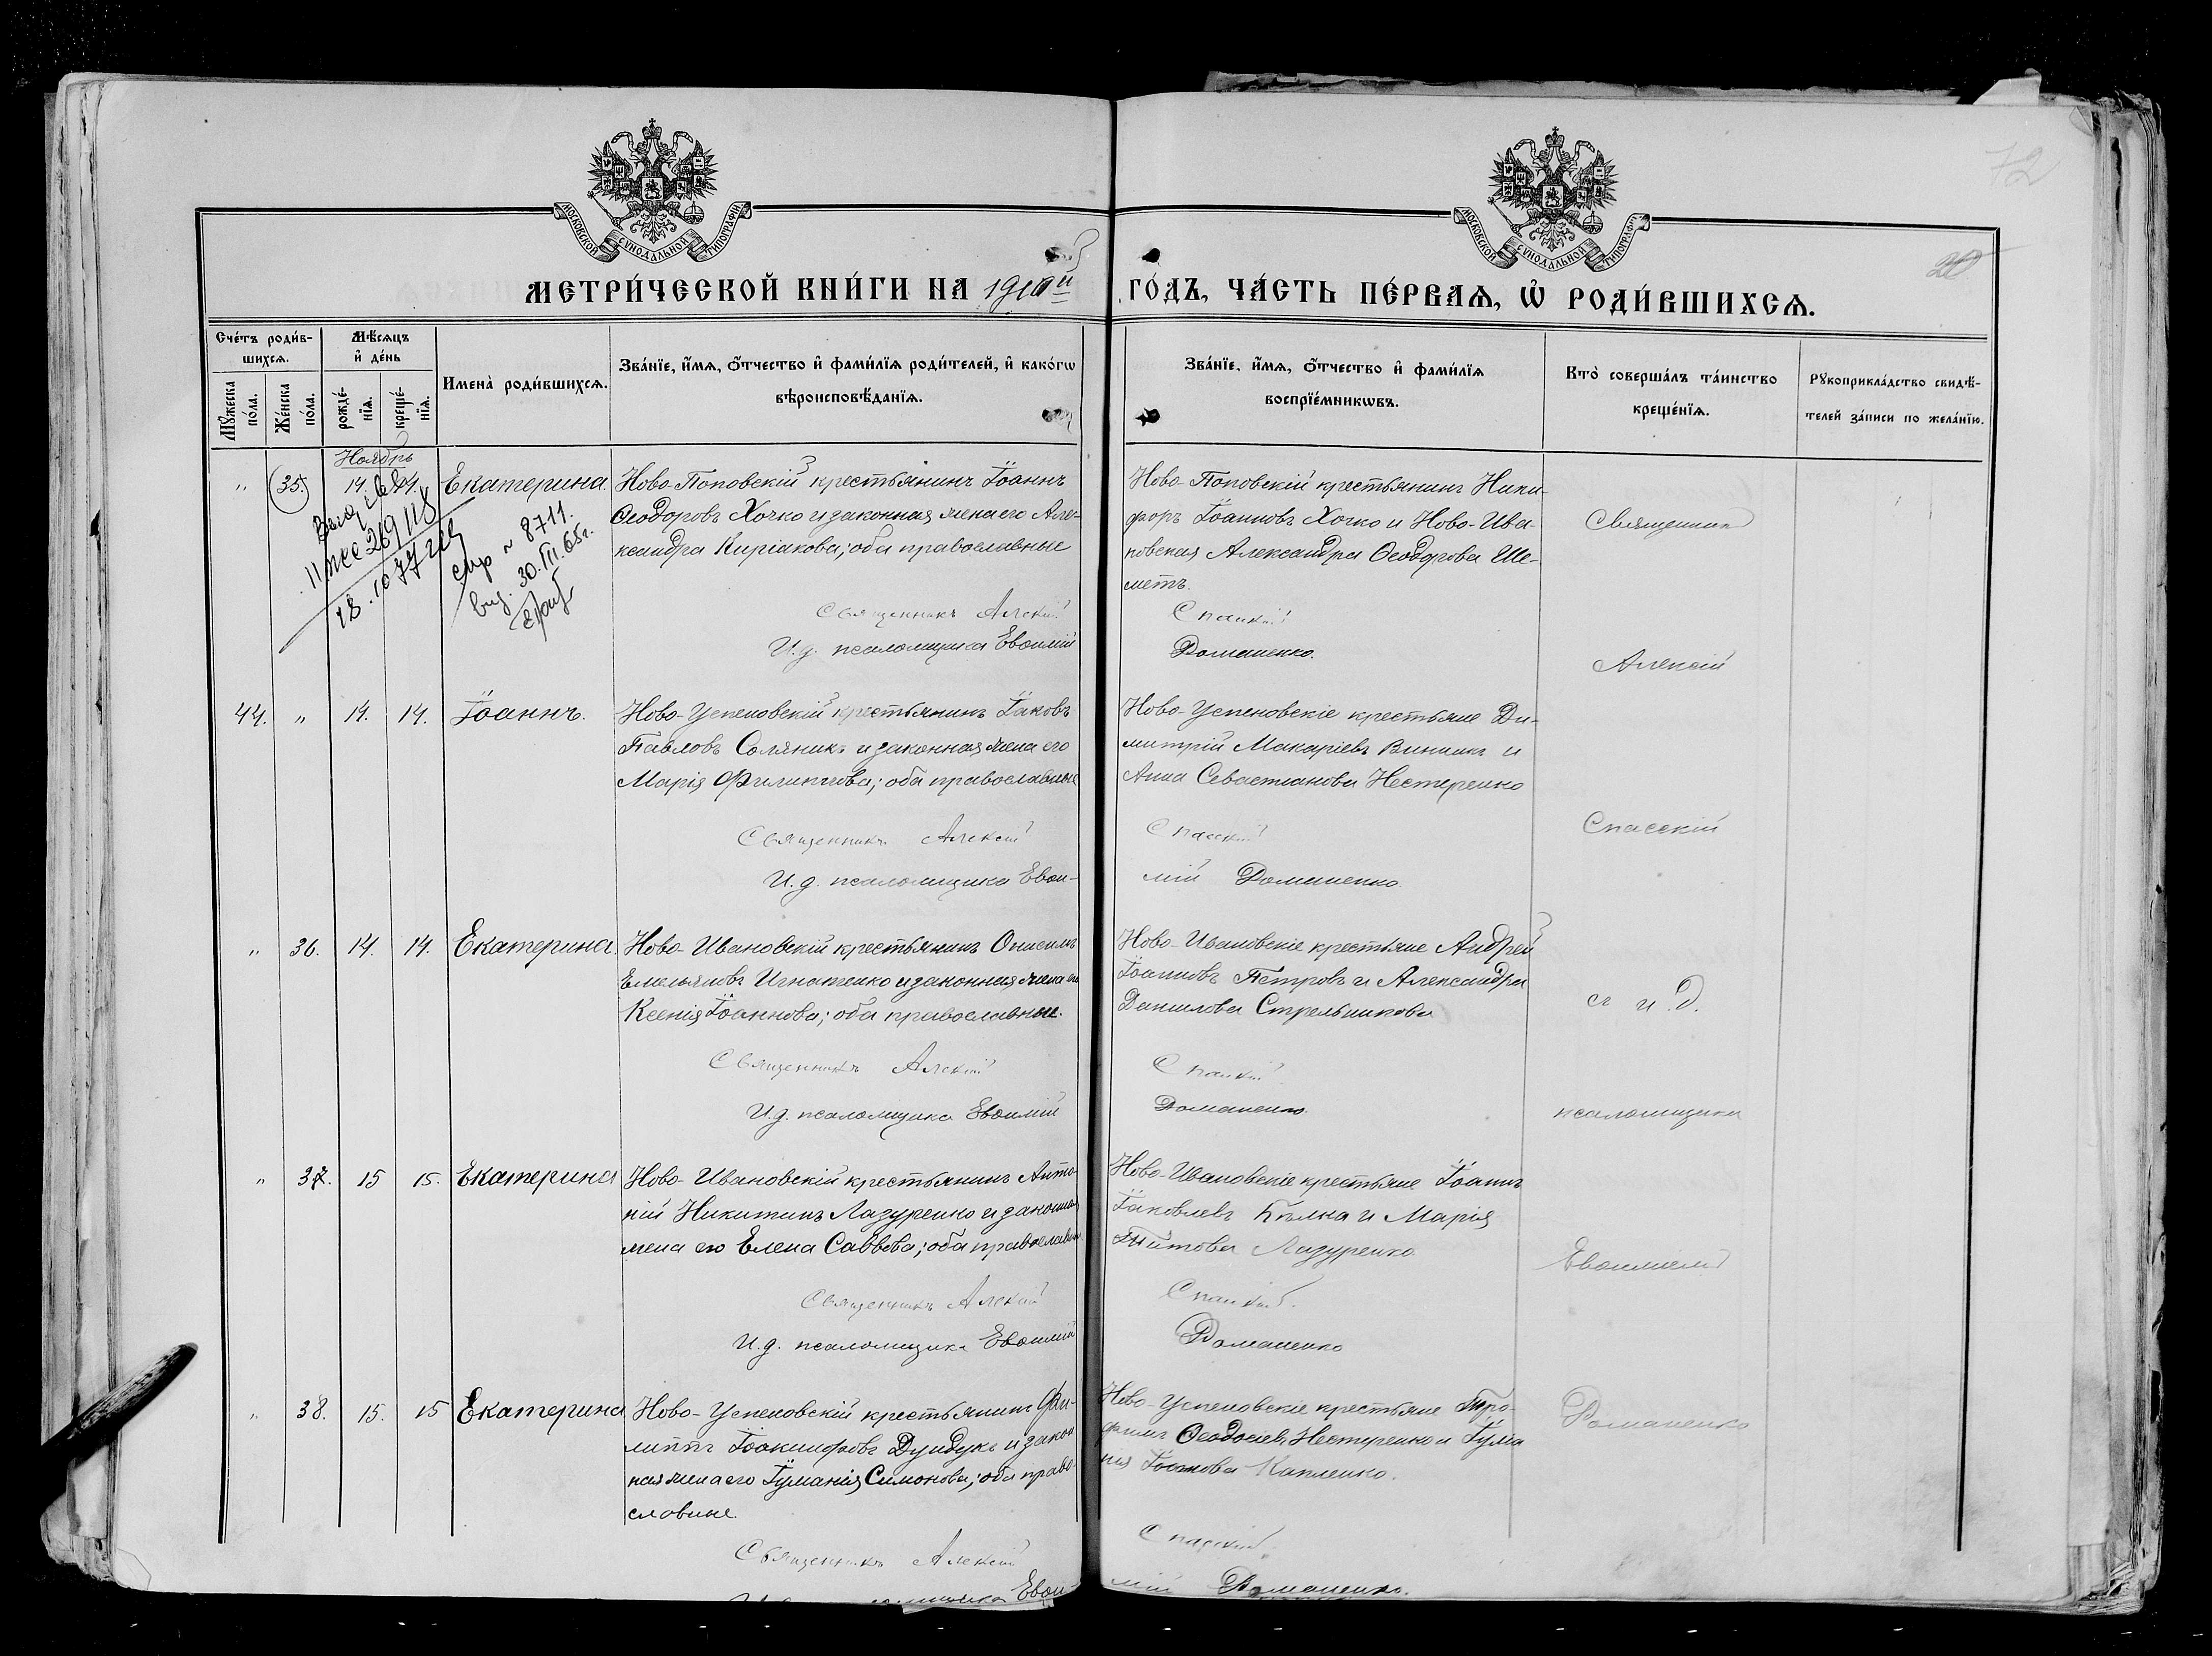 72
20
МОСКОВСКОЙ СѴНОДАЛЬНОЙ ТИПОГРАФІИ
МОСКОВСКОЙ СѴНОДАЛЬНОЙ ТИПОГРАФІИ
МЕТРИ́ЧЕСКОЙ КНИ́ГИ НА
ГО́ДЪ, ЧА́СТЬ ПЕ́РВАѦ, Ѡ҆ РОДИ́ВШИХСѦ.
Сче́тъ роди́в-
шихсѧ.
Мꙋ́жеска по́ла.
Же́нска по́ла.
Мѣ́сѧцъ
и҆ де́нь
рожде́-
нїѧ.
креще́-
нїѧ.
Имена̀ роди́вшихсѧ.
Зва́нїе, и҆́мѧ, ѻ҆́тчество и҆ фами́лїѧ роди́телей, и҆ како́гѡ
вѣроисповѣ́данїѧ.
Зва́нїе, и҆́мѧ, ѻ҆́тчество и҆ фами́лїѧ
воспрїе́мникѡвъ.
Кто̀ соверша́лъ та́инство
креще́нїѧ.
Рꙋкоприкла́дство свидѣ́-
телей за́писи по жела́нїю.
Ноябрь
" 35. 14. 14. Екатерина.
Ново-Поповскій крестьянинъ Іоаннъ
Ѳеодоровъ Хочко и законная жена его Але-
ксандра Киріакова; оба православные
Священникъ Алексій
И.д. псаломщика Евѳимій
№ 8711.
30.III.65г.
Ново-Поповскій крестьянинъ Ники-
форъ Іоанновъ Хочко и Ново-Ива-
новская Александра Ѳеодорова Ше-
метъ.
Спасскій
Доманенко.
Священник
Алексій
44. " 14. 14. Іоаннъ.
Ново-Успеновскій крестьянинъ Іаковъ
Павловъ Соляникъ и законная жена его
Марія Филиппова; оба православные
Священникъ Алексій
И.д. псаломщика Евѳи-
Ново-Успеновскіе крестьяне Ди-
митрій Макаріевъ Винникъ и
Анна Севастіанова Нестеренко
Спасскій
мій Доманенко.
Спасскій
" 36. 14. 14. Екатерина.
Ново-Ивановскій крестьянинъ Онисимъ
Емельяновъ Игнатенко и законная жена его
Ксенія Іоаннова; оба православные.
Священникъ Алексій
И.д. псаломщика Евѳимій
Ново-Ивановскіе крестьяне Андрей
Іоанновъ Петровъ и Александра
Данилова Стрельникова
Спасскій
Доманенко.
съ и.д.
псаломщика
" 37. 15 15. Екатерина
Ново-Ивановскій крестьянинъ Анто-
ній Никитинъ Лазуренко и законная
жена его Елена Саввова; оба православн
Священникъ Алексій
И.д. псаломщика Евѳимій
Ново-Ивановскіе крестьяне Іоаннъ
Іаковлевъ и Марія
Титова Лазуренко
Спасскій.
Доманенко
Евѳиміемъ
" 38. 15. 15 Екатерина
Ново-Успеновскій крестьянинъ Фи-
липпъ Дундукъ и закон
ная жена его Іуліанія Симонова; оба право-
славные.
Священникъ Алексій
И.д. псаломщика Евѳи-
Ново-Успеновскіе крестьяне Тро-
фимъ Ѳеодосіевъ Нестеренко и Іуліа
нія Іоаннова Капленко.
Спасскій
мій Доманенко.
Доманенко